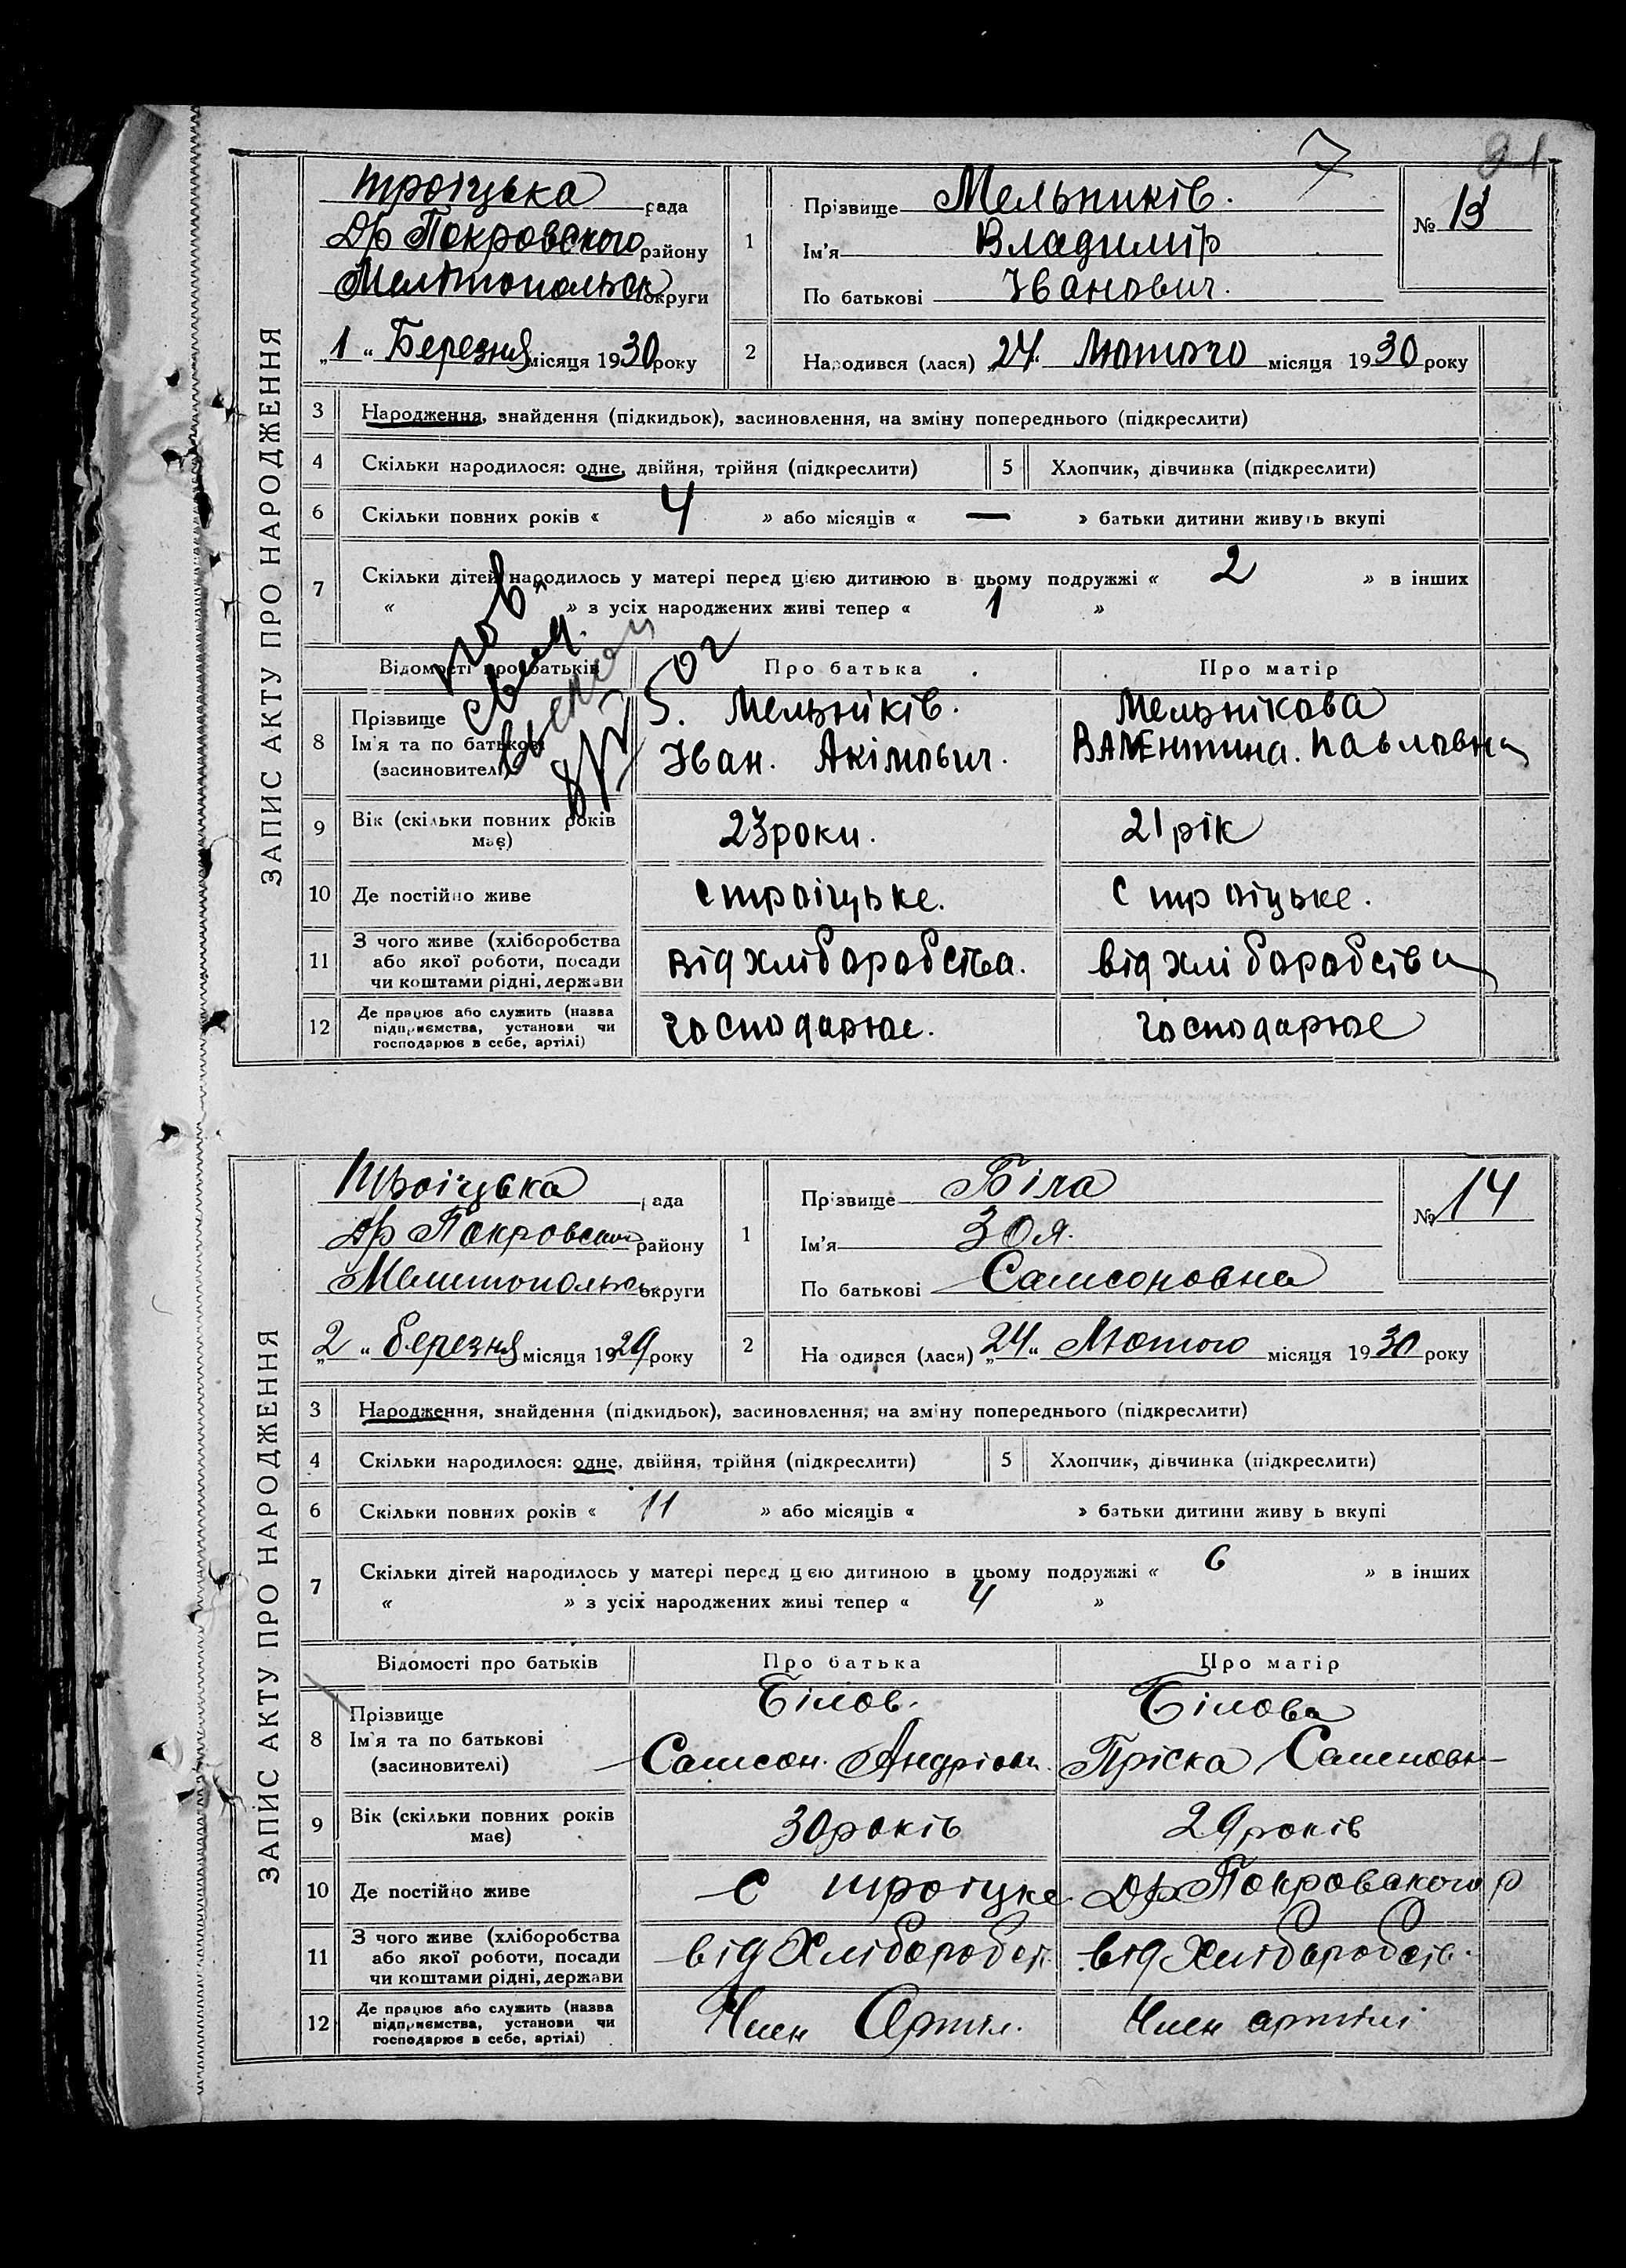 7
91
ЗАПИС АКТУ ПРО НАРОДЖЕННЯ
Троіцька рада
Др Покровского району
Мелітопольск округи
„1“ Березня місяця 1930 року
1
Прізвище Мельників.
Ім'я Владимір
По батькові Іванович.
№ 13
2
Народився (лася) „24“ Лютого місяця 1930 року
3 Народження, знайдення (підкидьок), засиновлення, на зміну попереднього (підкреслити)
4 Скільки народилося: одне, двійня, трійня (підкреслити) 5 Хлопчик, дівчинка (підкреслити)
6 Скільки повних років « 4 » або місяців « — » батьки дитини живуть вкупі
7 Скільки дітей народилось у матері перед цією дитиною в цьому подружжі « 2 » в інших
« » з усіх народжених живі тепер « 1 »
Відомості про батьків Про батька Про матір
8 Прізвище
Ім'я та по батькові
(засиновителі)
Мельніків.
Іван. Акімович.
Мельнікова
Валентина. Павловна
9 Вік (скільки повних років
має)
23 роки.
21 рік
10 Де постійно живе с троіцьке. с троіцьке.
11 З чого живе (хліборобства
або якої роботи, посади
чи коштами рідні, держави
від хліборобства. від хліборобства
12 Де працює або служить (назва
підприємства, установи чи
господарює в себе, артілі)
господарює. господарює
ЗАПИС АКТУ ПРО НАРОДЖЕННЯ
Троіцька рада
Др Покровского району
Мелитопольск округи
„2“ березня місяця 1929 року
1
Прізвище Біла
Ім'я Зоя.
По батькові Самсоновна
№ 14
2
Народився (лася) „24“ Лютого місяця 1930 року
3 Народження, знайдення (підкидьок), засиновлення, на зміну попереднього (підкреслити)
4 Скільки народилося: одне, двійня, трійня (підкреслити) 5 Хлопчик, дівчинка (підкреслити)
6 Скільки повних років « 11 » або місяців « » батьки дитини живуть вкупі
7 Скільки дітей народилось у матері перед цією дитиною в цьому подружжі « 6 » в інших
« » з усіх народжених живі тепер « 4 »
Відомості про батьків Про батька Про матір
8 Прізвище
Ім'я та по батькові
(засиновителі)
Білов.
Самсон. Андріови.
Білова
Пріска Семеновн
9 Вік (скільки повних років
має)
30 років
29 років
10 Де постійно живе с троіцке Др Покровского р
11 З чого живе (хліборобства
або якої роботи, посади
чи коштами рідні, держави
від Хліборобст. від Хліборобств.
12 Де працює або служить (назва
підприємства, установи чи
господарює в себе, артілі)
Член Артіл. Член артілі